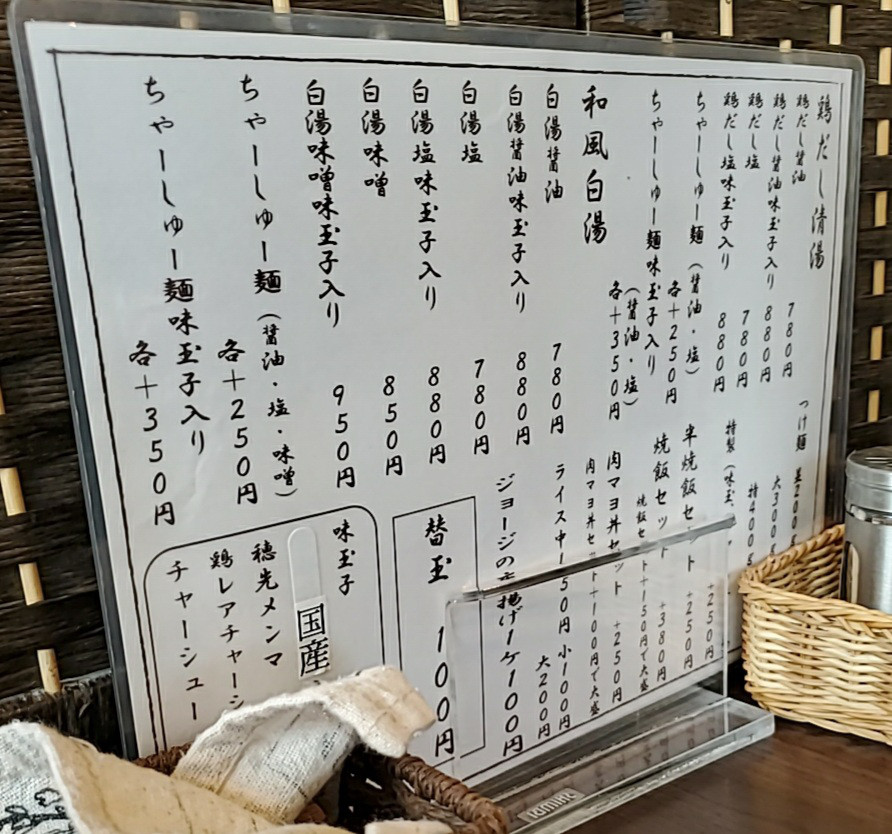 鶏だし清湯
鶏だし醤油 780円
鶏だし醤油味玉子入り 880円
鶏だし塩 780円
鶏だし塩味玉子入り 880円
ちゃーしゅー麺（醤油・塩）
各＋250円
ちゃーしゅー麺味玉子入り
（醤油・塩）
各＋350円
和風白湯
白湯醤油 780円
白湯醤油味玉子入り 880円
白湯塩 780円
白湯塩味玉子入り 880円
白湯味噌 850円
白湯味噌味玉子入り 950円
ちゃーしゅー麺（醤油・塩・味噌）
各＋250円
ちゃーしゅー麺味玉子入り
各＋350円
つけ麺 並200g
大300g
特400g
特製（味玉、
＋250円
半焼飯セット ＋250円
焼飯セット ＋380円
焼飯セット＋150円で大盛
肉マヨ丼セット ＋250円
肉マヨ丼セット＋100円で大盛
ライス中150円 小100円
大200円
ジョージの 揚げ1ケ100円
替玉 100円
味玉子
国産
穂先メンマ
鶏レアチャーシ
チャーシュー